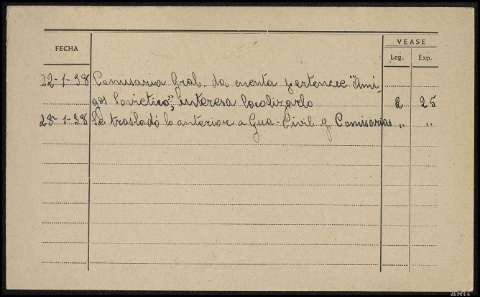 FECHA VEASE
Leg. Exp.
12-1-38 Comisaria Gral. da cuenta pertenece "Ami-
gos Sovieticos", interesa localizarlo 2 25
28-1-38 Se trasladó lo anterior a Gua-Civil y Comisarias " "